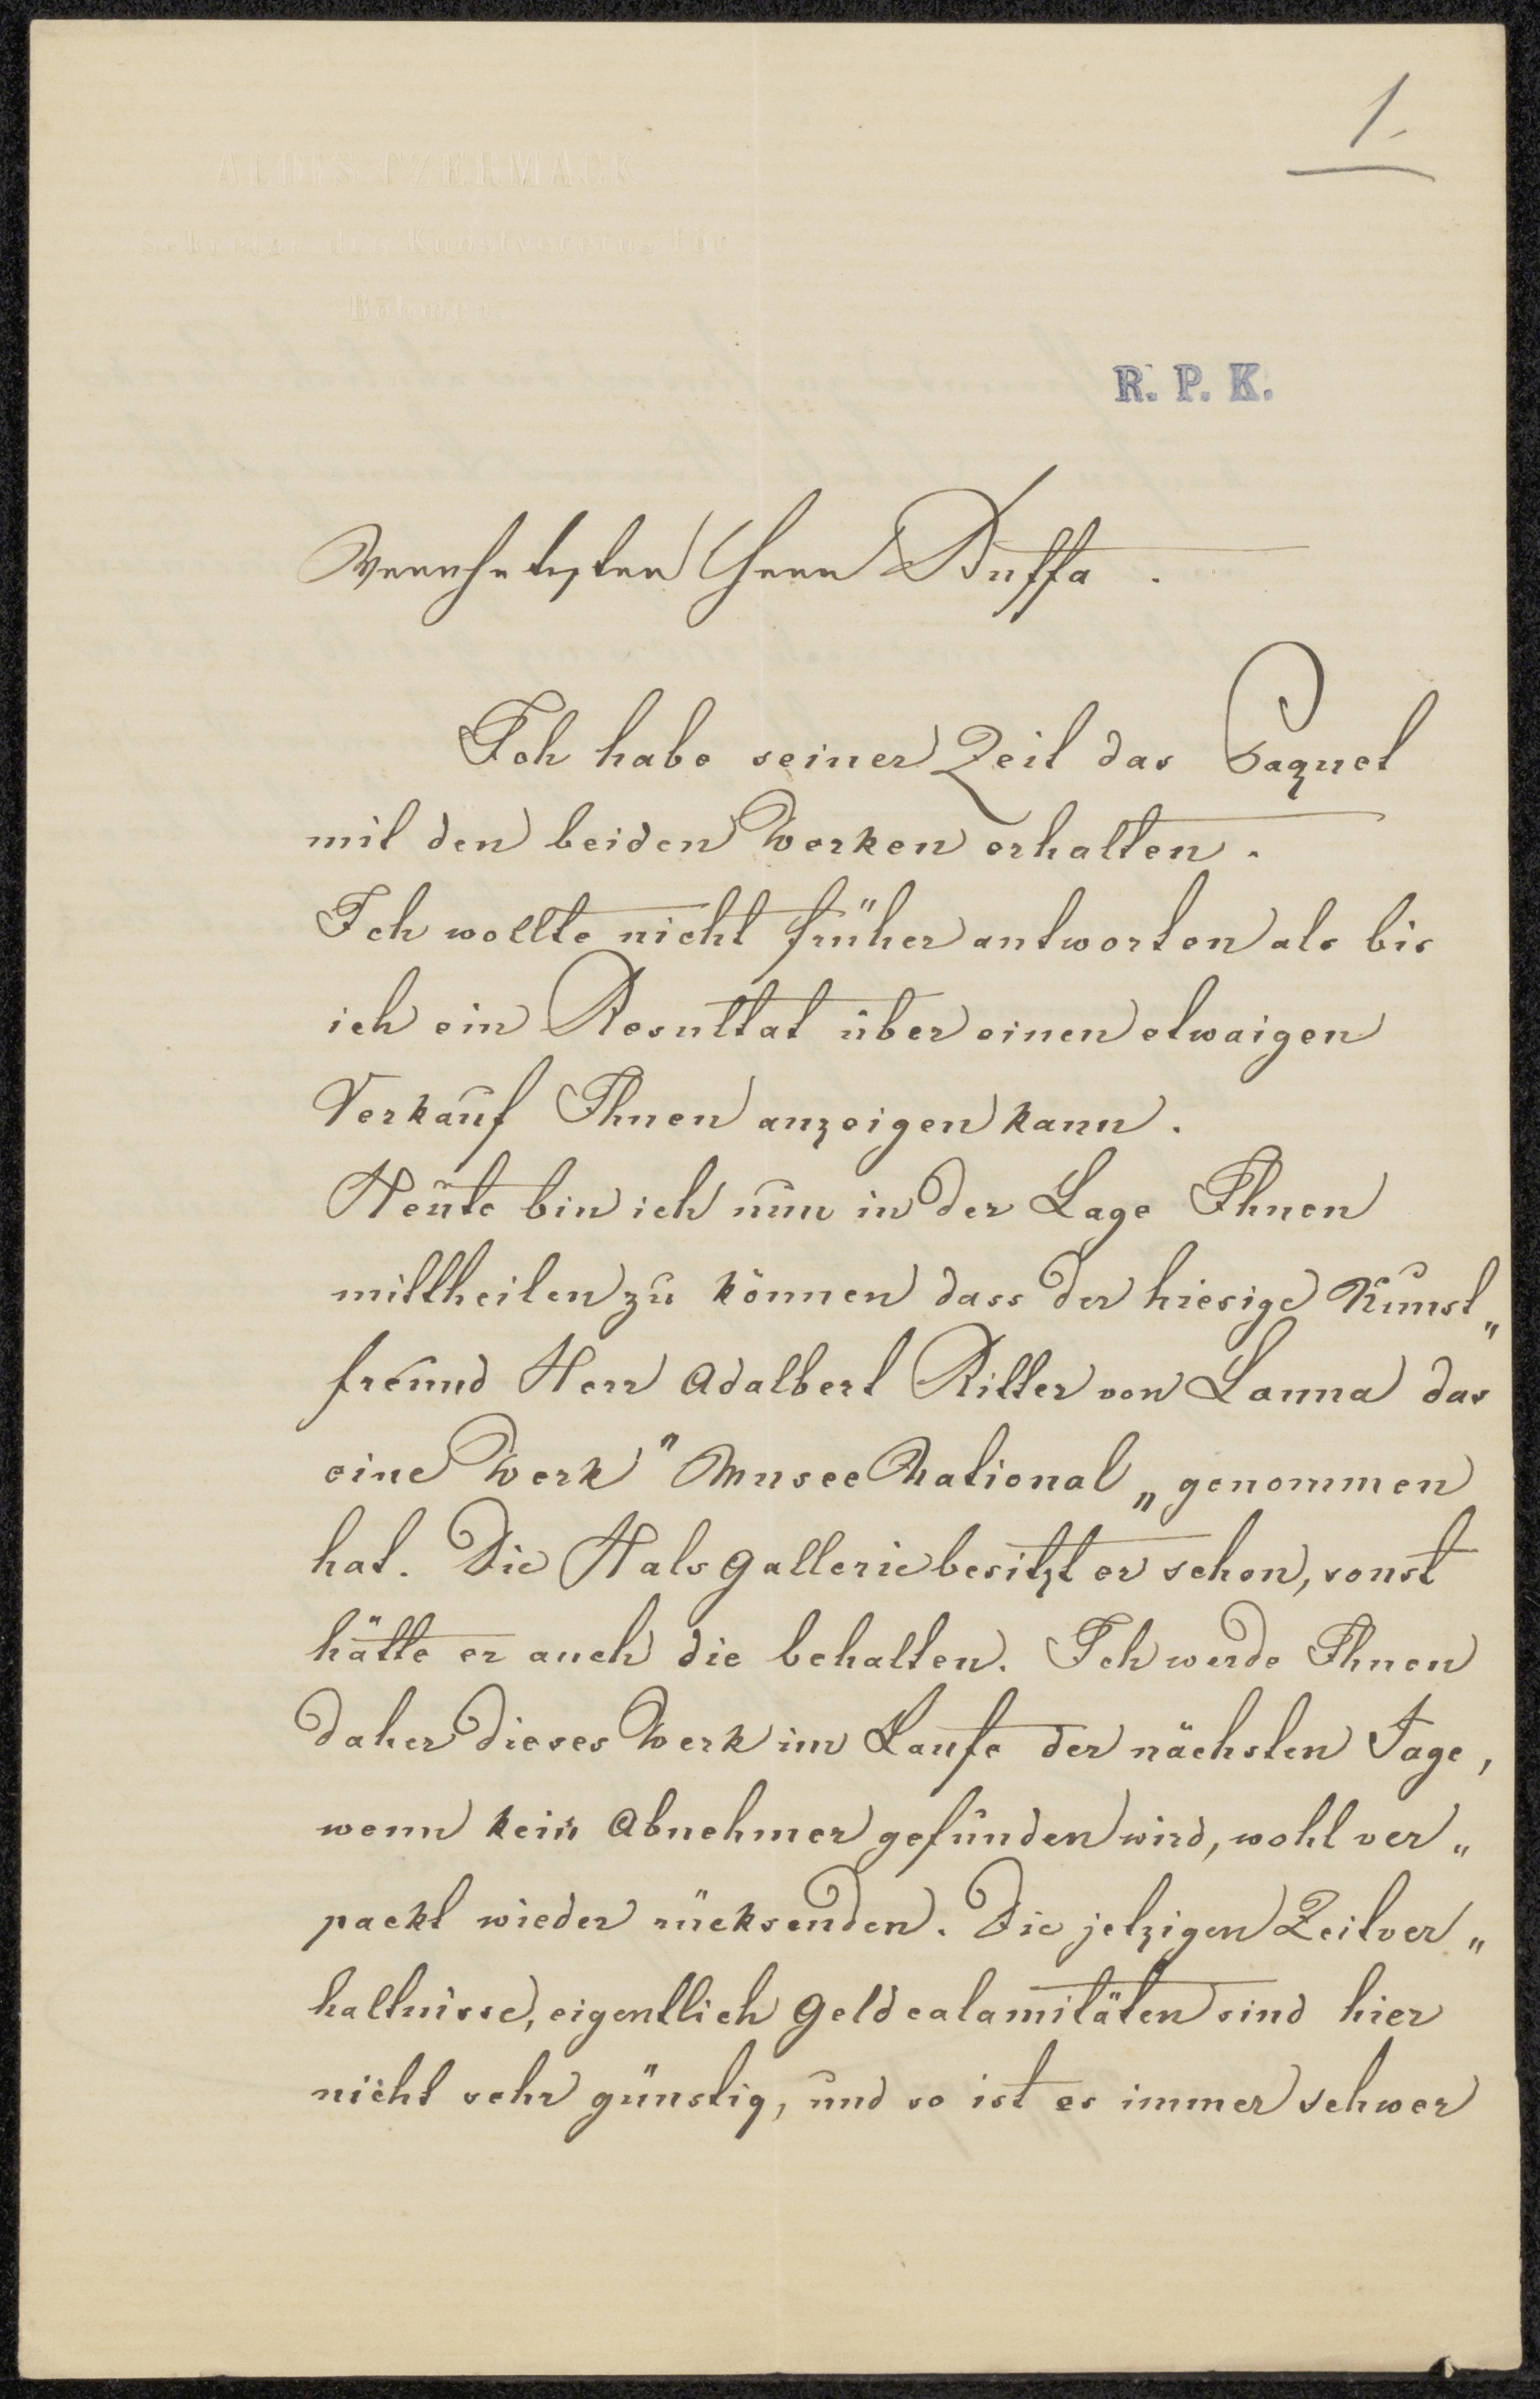 1.
ALOIS CZERMACK
Sekretär des Kunstvereins für
Böhmen
R. P. K.
Verehrtester Herr Buffa.
Ich habe seiner Zeit das Paquet
mit den beiden Werken erhalten.
Ich wollte nicht früher antworten als bis
ich ein Resultat über einen etwaigen
Verkauf Ihnen anzeigen kann.
Heute bin ich nun in der Lage Ihnen
mittheilen zu können dass der hiesige Kunst„
freund Herr Adalbert Ritter von Lanna das
eine Werk "Musee National„ genommen
hat. Die Hals Gallerie besitzt er schon, sonst
hätte er auch die behalten. Ich werde Ihnen
daher dieses Werk im Laufe der nächsten Tage,
wenn kein Abnehmer gefunden wird, wohl ver„
packt wieder rücksenden. Die jetzigen Zeitver„
haltnisse, eigentlich Geldcalamitäten sind hier
nicht sehr günstig, und so ist es immer schwer